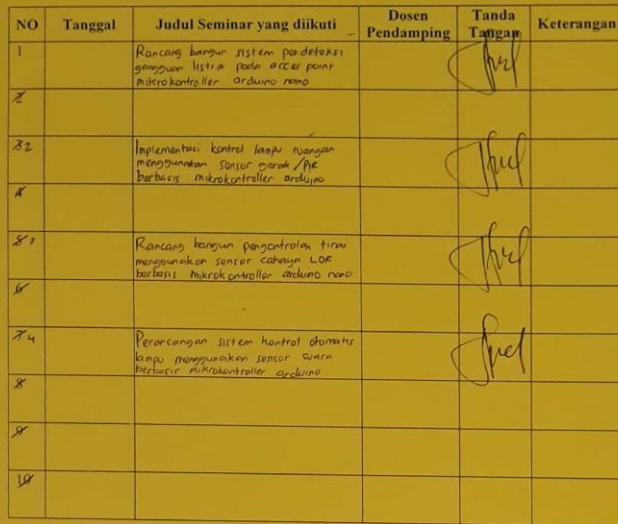 NO Tanggal Judul Seminar yang diikuti Dosen Pendamping Tanda Tangan Keterangan
1 Rancang bangun sistem pendeteksi
gangguan listrik pada acces point
mikrokontroller arduino nano
2
3 2 Implementasi kontrol lampu ruangan
menggunakan sensor gerak / PIR
berbasis mikrokontroller arduino
4
5 3 Rancang bangun pengontrolan tirai
menggunakan sensor cahaya LDR
berbasis mikrokontroller arduino nano
6
7 4 Perancangan sistem kontrol otomatis
lampu menggunakan sensor suara
berbasis mikrokontroller arduino
8
9
10